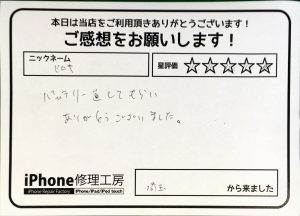 本日は当店をご利用頂きありがとうございます！
ご感想をお願いします！
ニックネーム
星評価 ☆☆☆☆☆
バッテリー 直してもらい
ありがとうございました。
iPhone修理工房
iPhone Repair Factory
iPhone/iPad/iPod touch
埼玉 から来ました